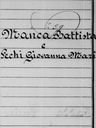 Manca Battista
e
Pechi Giovanna Mari